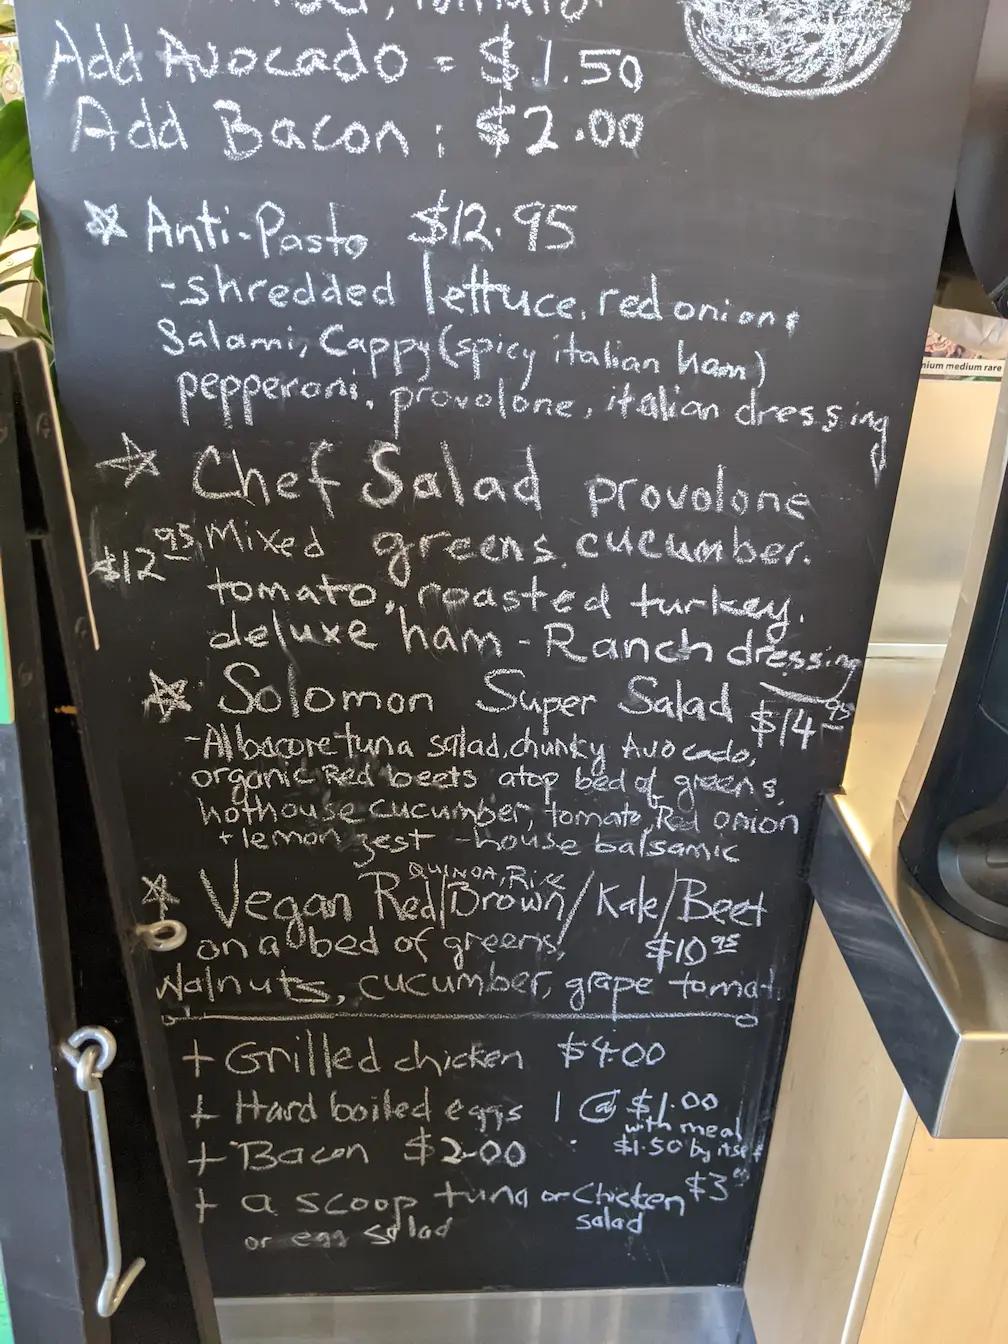 tomato
Add Avocado = $1.50
Add Bacon : $2.00
☆ Anti-Pasto $12.95
-shredded lettuce, red onion &
Salami, Cappy (spicy italian ham)
pepperoni, provolone, italian dressing
☆ Chef Salad provolone
$12.95 Mixed greens, cucumber.
tomato, roasted turkey.
deluxe ham - Ranch dressing
☆ Solomon Super Salad $14.95
-Albacore tuna salad, chunky Avocado,
organic Red beets atop bed of greens,
hothouse cucumber, tomato, Red onion
+ lemon zest - house balsamic
QUINOA, Rice
☆ Vegan Red/Brown/Kale/Beet
on a bed of greens, $10.95
Walnuts, cucumber, grape tomat
+ Grilled chicken $4.00
+ Hard boiled eggs 1 @ $1.00
with meal
+ Bacon $2.00 : $1.50 by itself
+ a scoop tuna or Chicken $3
or egg salad salad
nium medium rare